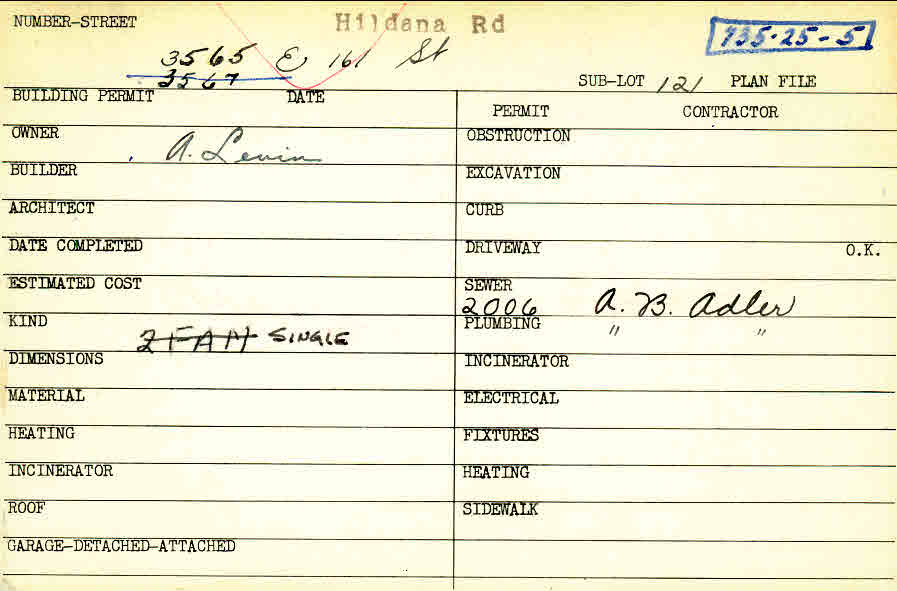 NUMBER-STREET Hildana Rd 735-25-5
3565 E, 161 St
3567
SUB-LOT 121 PLAN FILE
BUILDING PERMIT DATE
PERMIT CONTRACTOR
OWNER A. Levin
OBSTRUCTION
BUILDER
EXCAVATION
ARCHITECT
CURB
DATE COMPLETED
DRIVEWAY O.K.
ESTIMATED COST
SEWER
2006 A. B. Adler
KIND 2 FAM SINGLE
PLUMBING " "
DIMENSIONS
INCINERATOR
MATERIAL
ELECTRICAL
HEATING
FIXTURES
INCINERATOR
HEATING
ROOF
SIDEWALK
GARAGE-DETACHED-ATTACHED